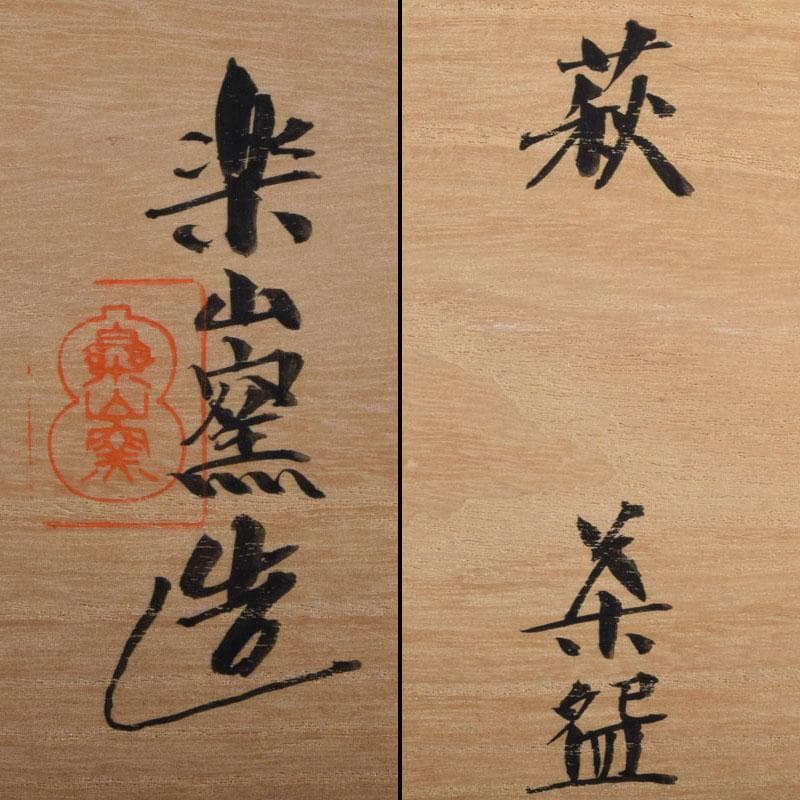 萩
茶盌
楽山窯造
樂山窯